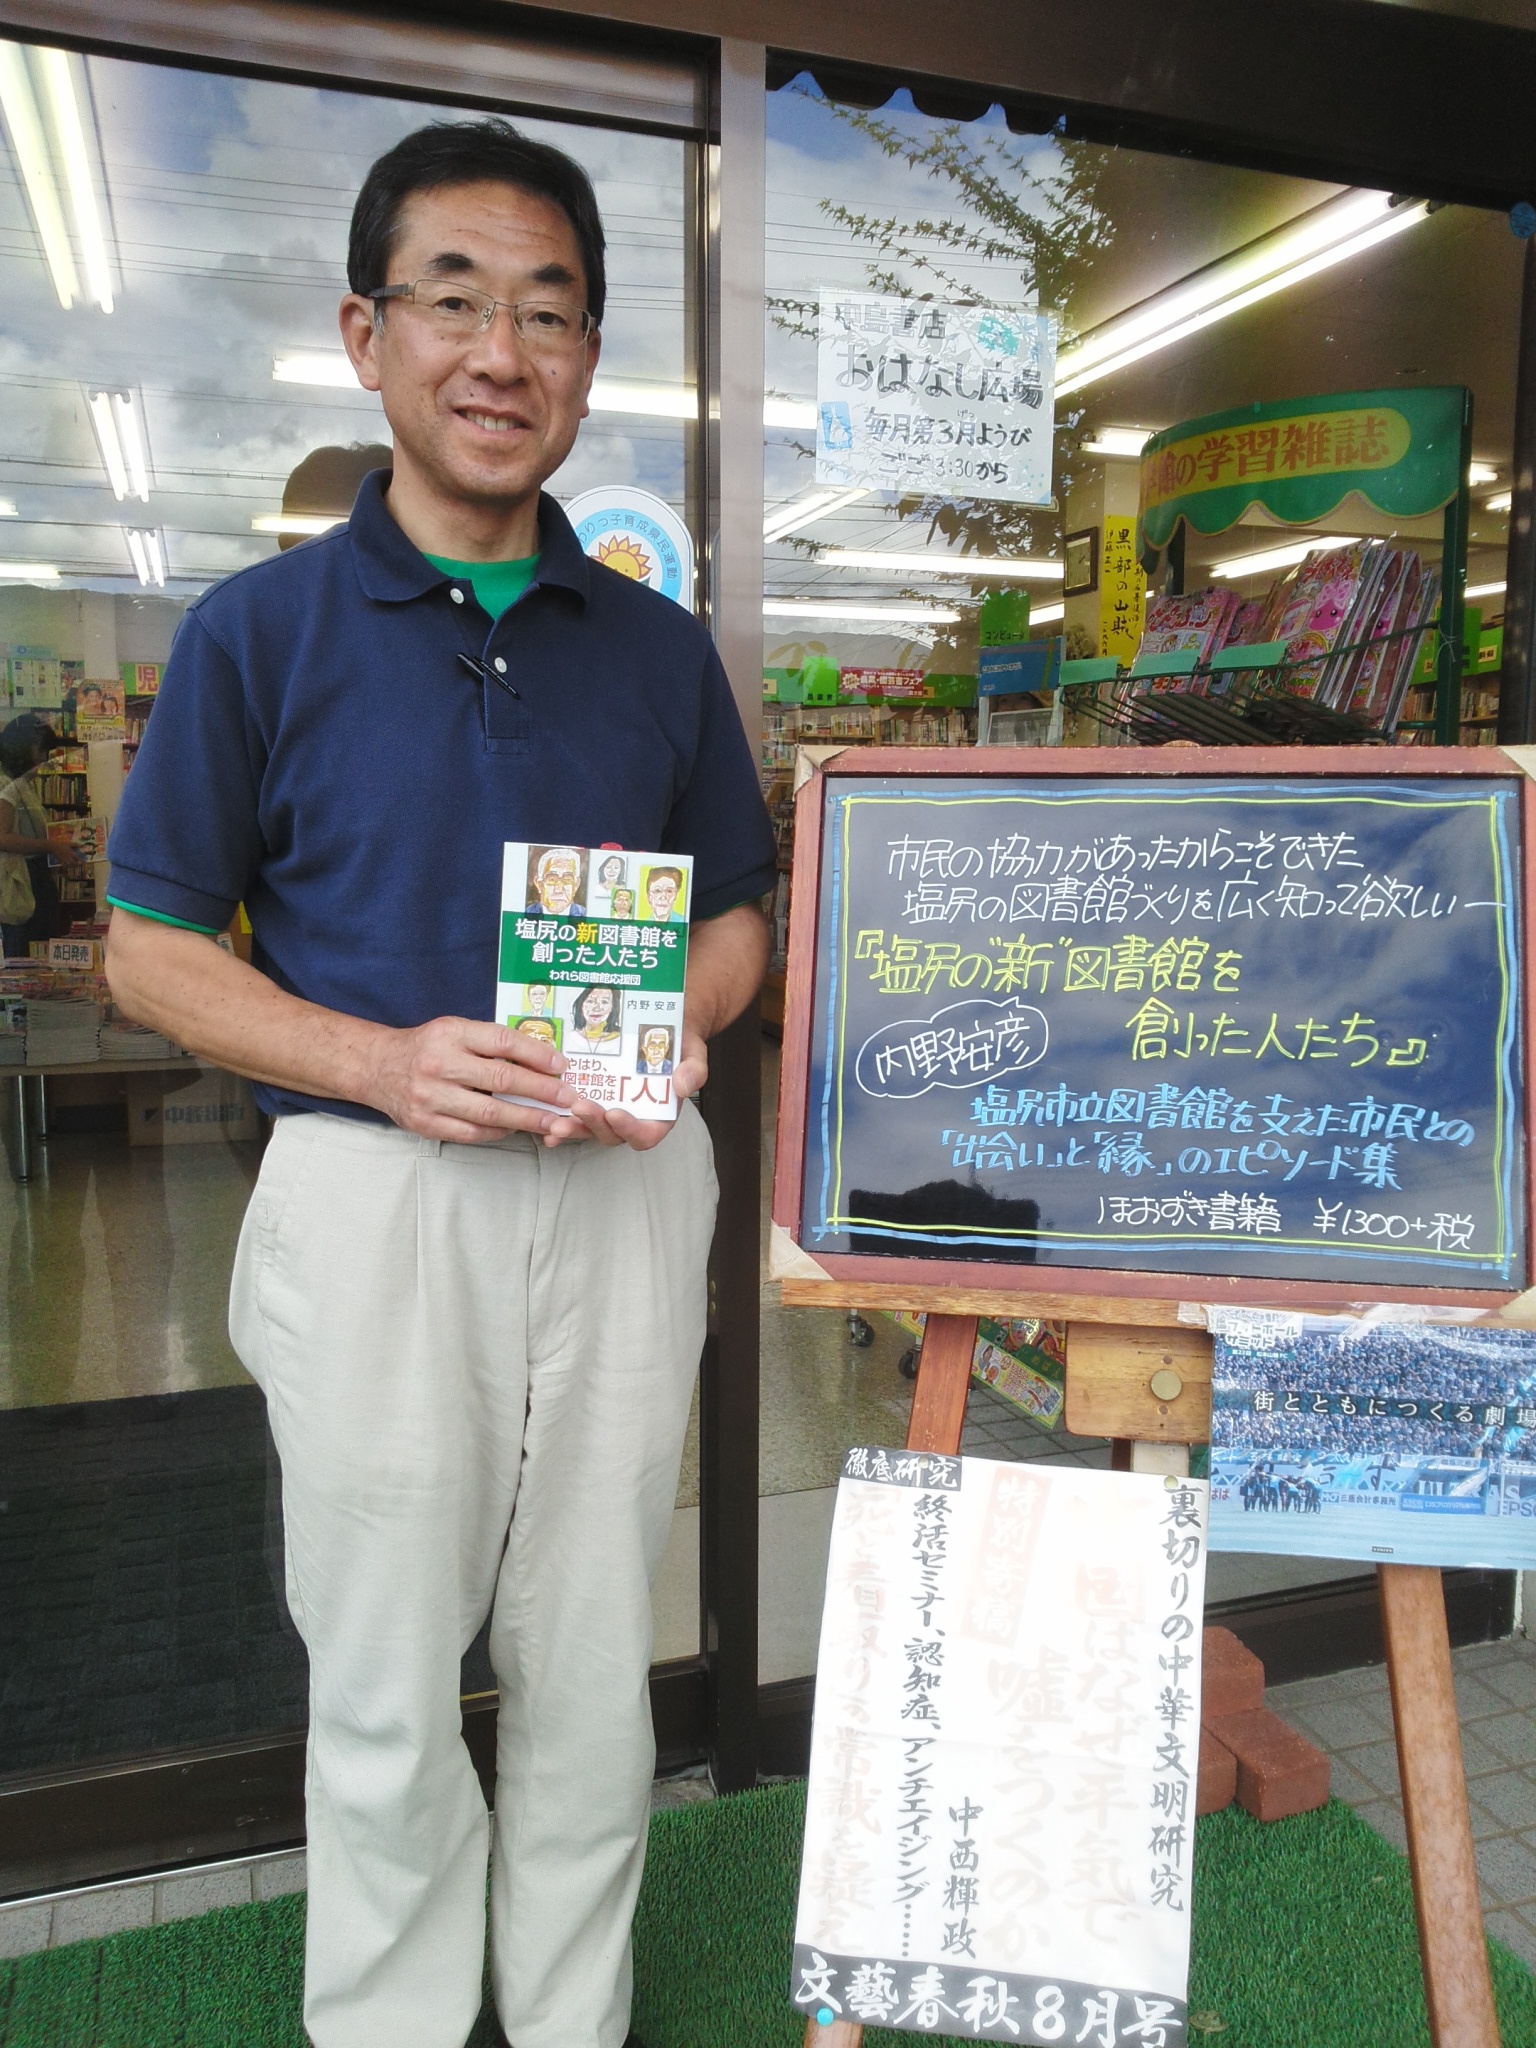 中島書店
おはなし広場
毎月第3月ようび
げつ
ごご3:30から
の学習雑誌
りっ子育成県民運動
黒部の山賊
コンピュータ
児
本日発売
塩尻の新図書館を
創った人たち
われら図書館応援団
内野 安彦
やはり、
図書館を
るのは「人」
市民の協力があったからこそできた
塩尻の図書館づくりを広く知って欲しい―
『塩尻の"新"図書館を
創った人たち』
内野安彦
塩尻市立図書館を支えた市民との
「出会い」と「縁」のエピソード集
ほおずき書籍 ¥1300+税
フットボール
サミット
街とともにつくる劇場
裏切りの中華文明研究
中国はなぜ平気で
嘘をつくのか
特別寄稿
中西輝政
徹底研究
終活セミナー、認知症、アンチエイジング……
死と看取りの常識を疑え
文藝春秋8月号